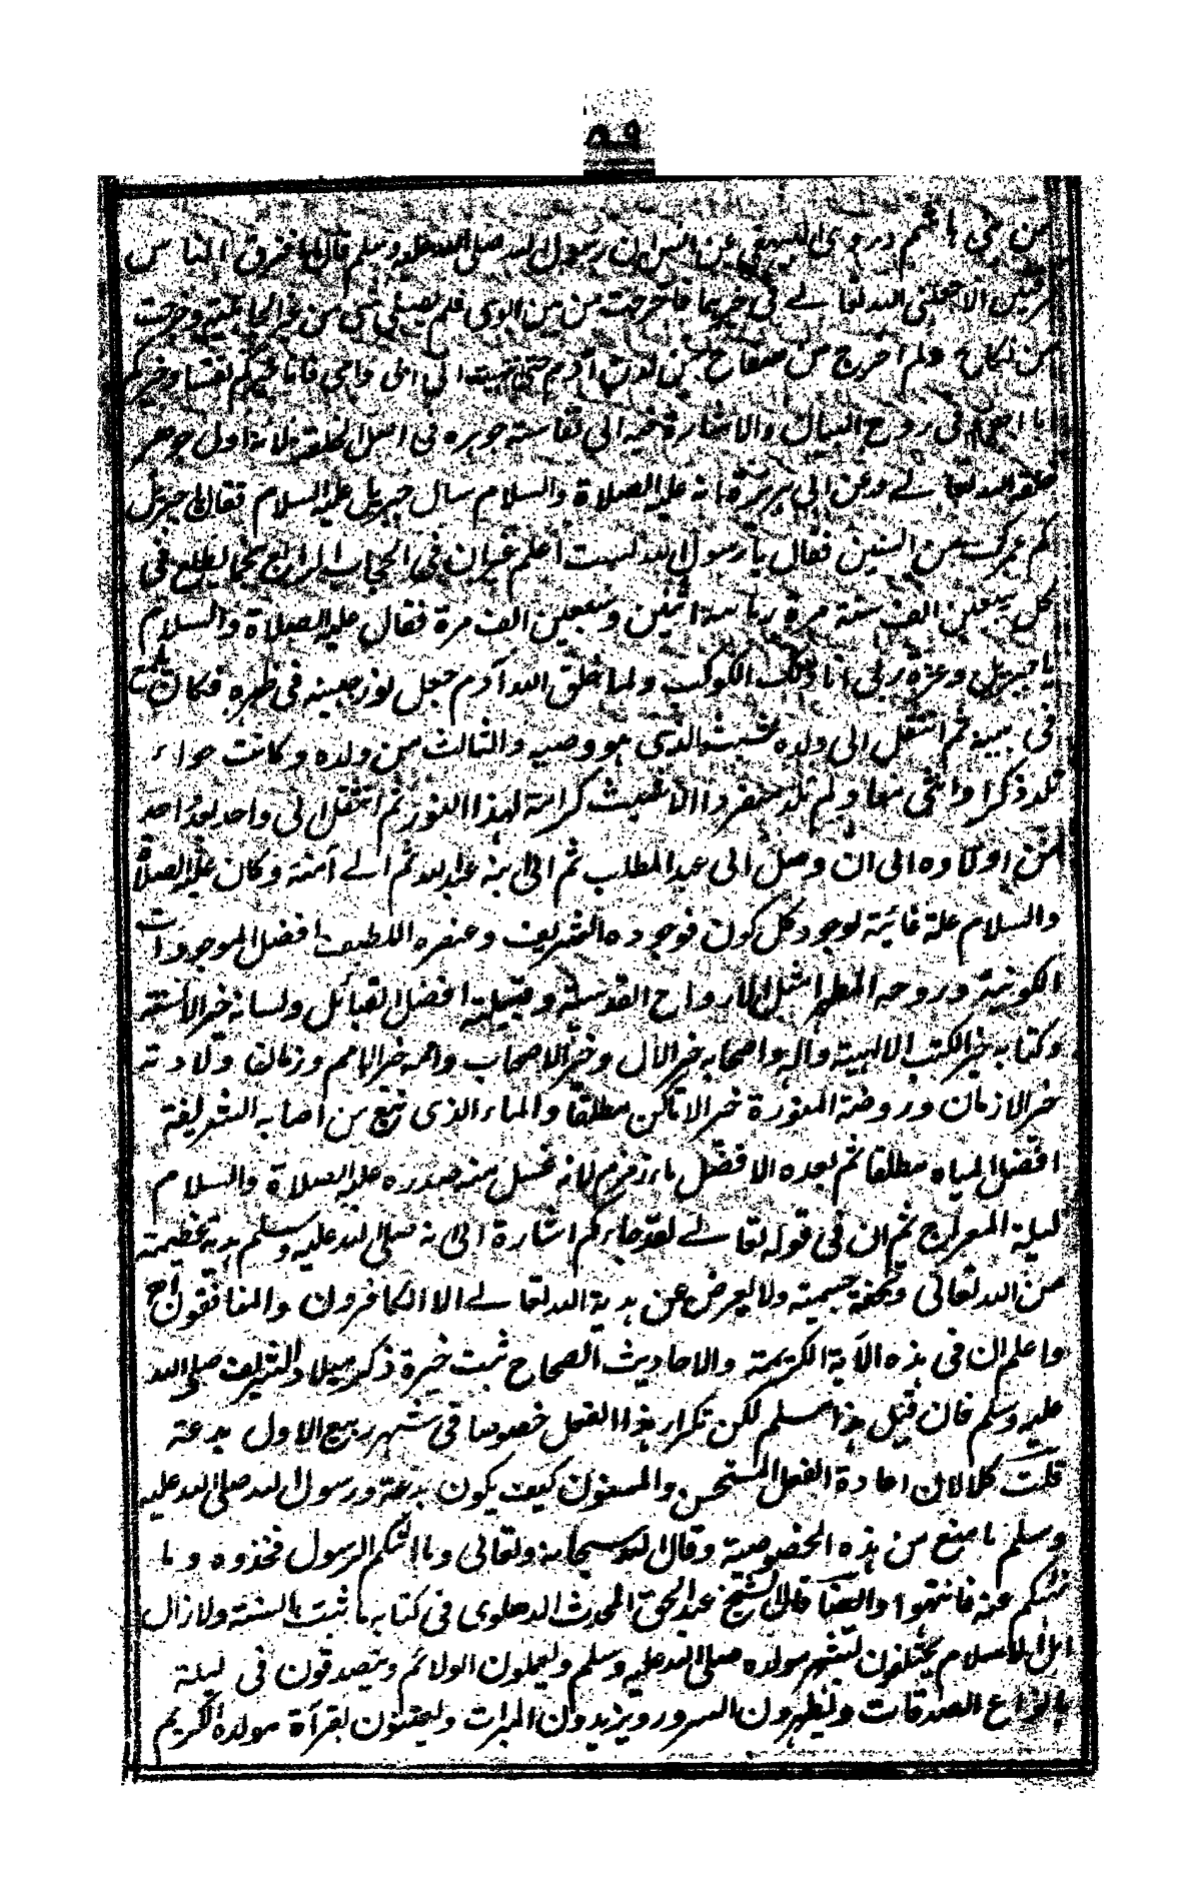 ٥٩
من بني هاشم وروى البيهقي عن انس ان رسول الله صلى الله عليه وسلم قال ما افترق الناس
فرقتين الا جعلني الله تعالے في خيرهما فاخرجت من بين ابوي فلم يصبني شي من عهر الجاهلية وخرجت
من نكاح ولم اخرج من سفاح من لدن آدم حتى انتهيت الى ابى وامي فانا خيركم نفسا وخيركم
ابا اهى في روح البيان والاشارة فيه الى نفاسة جوهره في اصل الخلقة ولانه اول جوهر
خلقه الله تعالے وعن ابى هريرة انه عليه الصلاة والسلام سال جبريل عليه السلام فقال يا جبريل
كم عمرك من السنين فقال يا رسول الله لست أعلم غير ان في الحجاب الرابع نجما يطلع في
كل سبعين الف سنة مرة رايته اثنين وسبعين الف مرة فقال عليه الصلاة والسلام
يا جبريل وعزة ربى انا ذلك الكوكب ولما خلق الله آدم جعل نور حبيبه فى ظهره فكان يلمع
فى جبينه ثم انتقل الى ولده شيث الذى هو وصيه والثالث من ولده وكانت حواء
تلد ذكرا وانثى معا ولم تلد منفردا الا شيث كرامة لهذا النور ثم انتقل الى واحد بعد واحد
من اولاده الى ان وصل الى عبد المطلب ثم الى ابنه عبد الله ثم الے آمنة وكان عليه الصلاة
والسلام علة غائية لوجود كل كون فوجوده الشريف وعنصره اللطيف افضل الموجودات
الكونية وروحه المطهر امثل الارواح القدسية وقبيلته افضل القبائل ولسانه خير الالسنة
وكتابه خير الكتب الالهية وآله واصحابه خير الآل وخير الاصحاب وامته خير الامم وزمان ولادته
خير الازمان وروضته المنورة خير الاماكن مطلقا والماء الذى نبع من اصابعه الشريفة
افضل المياه مطلقا ثم بعده الافضل ماء زمزم لانه غسل منه صدره عليه الصلاة والسلام
ليلة المعراج ثم ان في قوله تعالے لقد جاءكم اشارة الى انه صلى الله عليه وسلم هدية عظيمة
من الله تعالى وتحفة جسيمة ولا يعرض عن هدية الله تعالے الا الكافرون والمنافقون اهـ
واعلم ان فى هذه الآية الكريمة والاحاديث الصحاح ثبت خيرة ذكر ميلاد الشريف صلى الله
عليه وسلم فان قيل هذا مسلم لكن تكرار هذا الفعل خصوصا فى شهر ربيع الاول بدعة
قلت كلا لان اعادة الفعل المستحسن والمسنون كيف يكون بدعة ورسول الله صلى الله عليه
وسلم ما منع من هذه الخصوصية وقال الله سبحانه وتعالى وما اتٰكم الرسول فخذوه وما
نهٰكم عنه فانتهوا وايضا قال الشيخ عبد الحق المحدث الدهلوى فى كتابه ما ثبت بالسنة ولا زال
اهل الاسلام يحتفلون لشهر مولده صلى الله عليه وسلم ويعملون الولائم ويتصدقون فى ليلته
بانواع الصدقات ويظهرون السرور ويزيدون المبرات ويعتنون بقرآة مولده الكريم